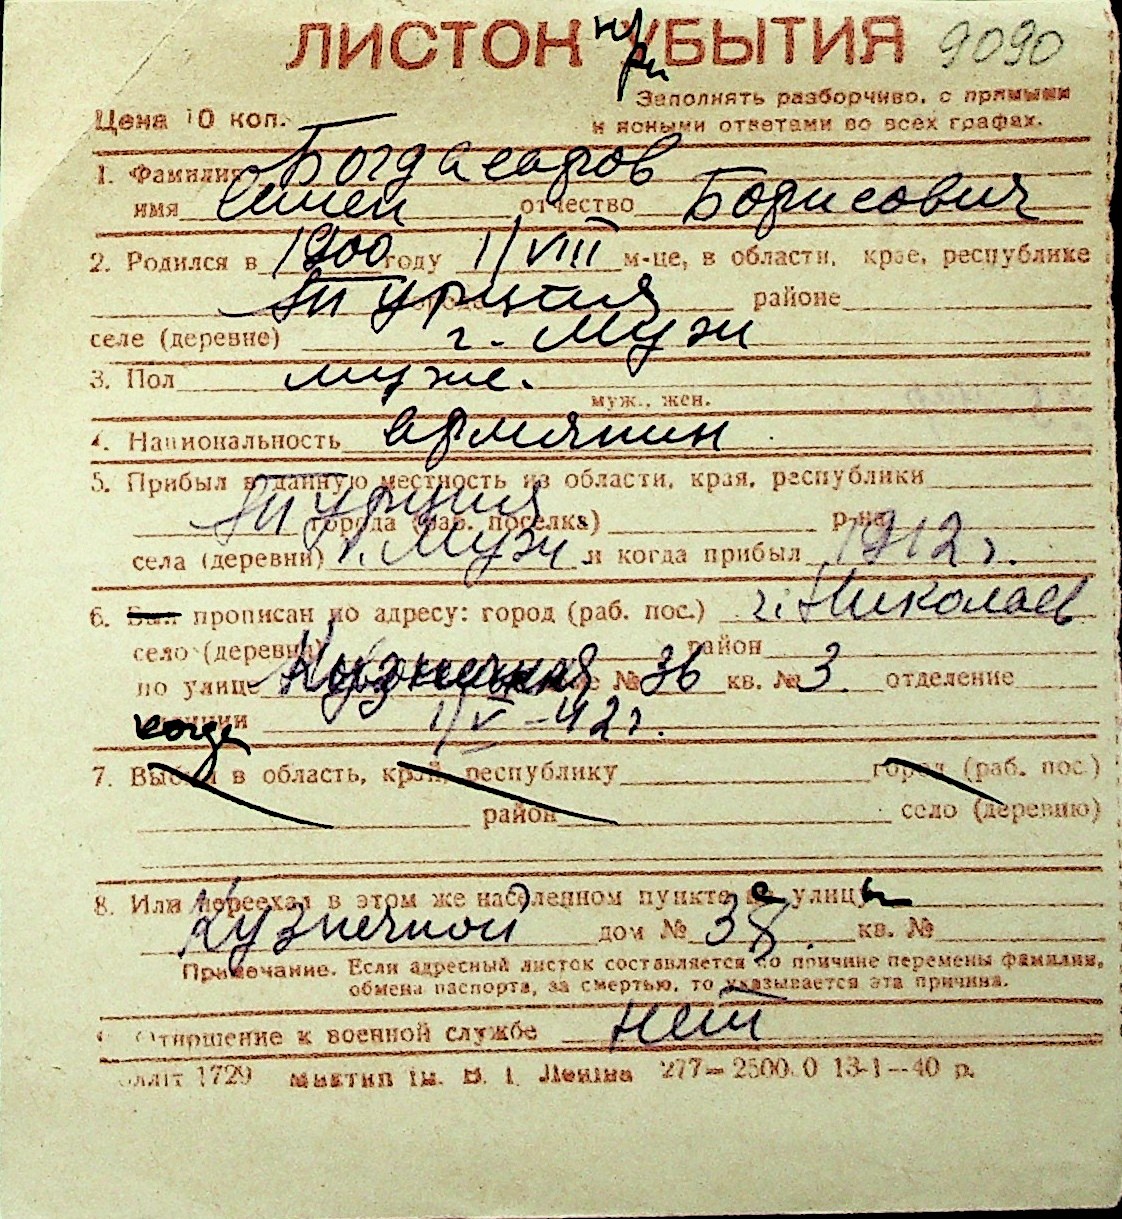 ЛИСТОК УБЫТИЯ 9090
при
Заполнять разборчиво, с прямыми
Цена 10 коп. и ясными ответами во всех графах.
1. Фамилия Богдасаров
имя Семен отчество Борисович
2. Родился в 1900 году 1/VIII м-це, в области, крае, республике
Турция города районе
селе (деревне) г. Муш
3. Пол муж.
муж., жен.
4. Национальность армянин
5. Прибыл в данную местность из области, края, республики
Турция города (раб. поселка) р-на
села (деревни) г. Муш и когда прибыл 1912 г.
6. Был прописан по адресу: город (раб. пос.) г. Николаев
село (деревня) район
по улице № 36 кв. № 3 отделение
когда 1/V-42 г.
7. Выбыл в область, край, республику город (раб. пос.)
район село (деревню)
8. Или переехал в этом же населенном пункте с улицы
Кузнечной дом № 38 кв. №
Примечание. Если адресный листок составляется по причине перемены фамилии,
обмена паспорта, за смертью, то указывается эта причина.
Отношение к военной службе нет
1729 ім. В. І. Леніна 277–2500.0 13-1–40 р.